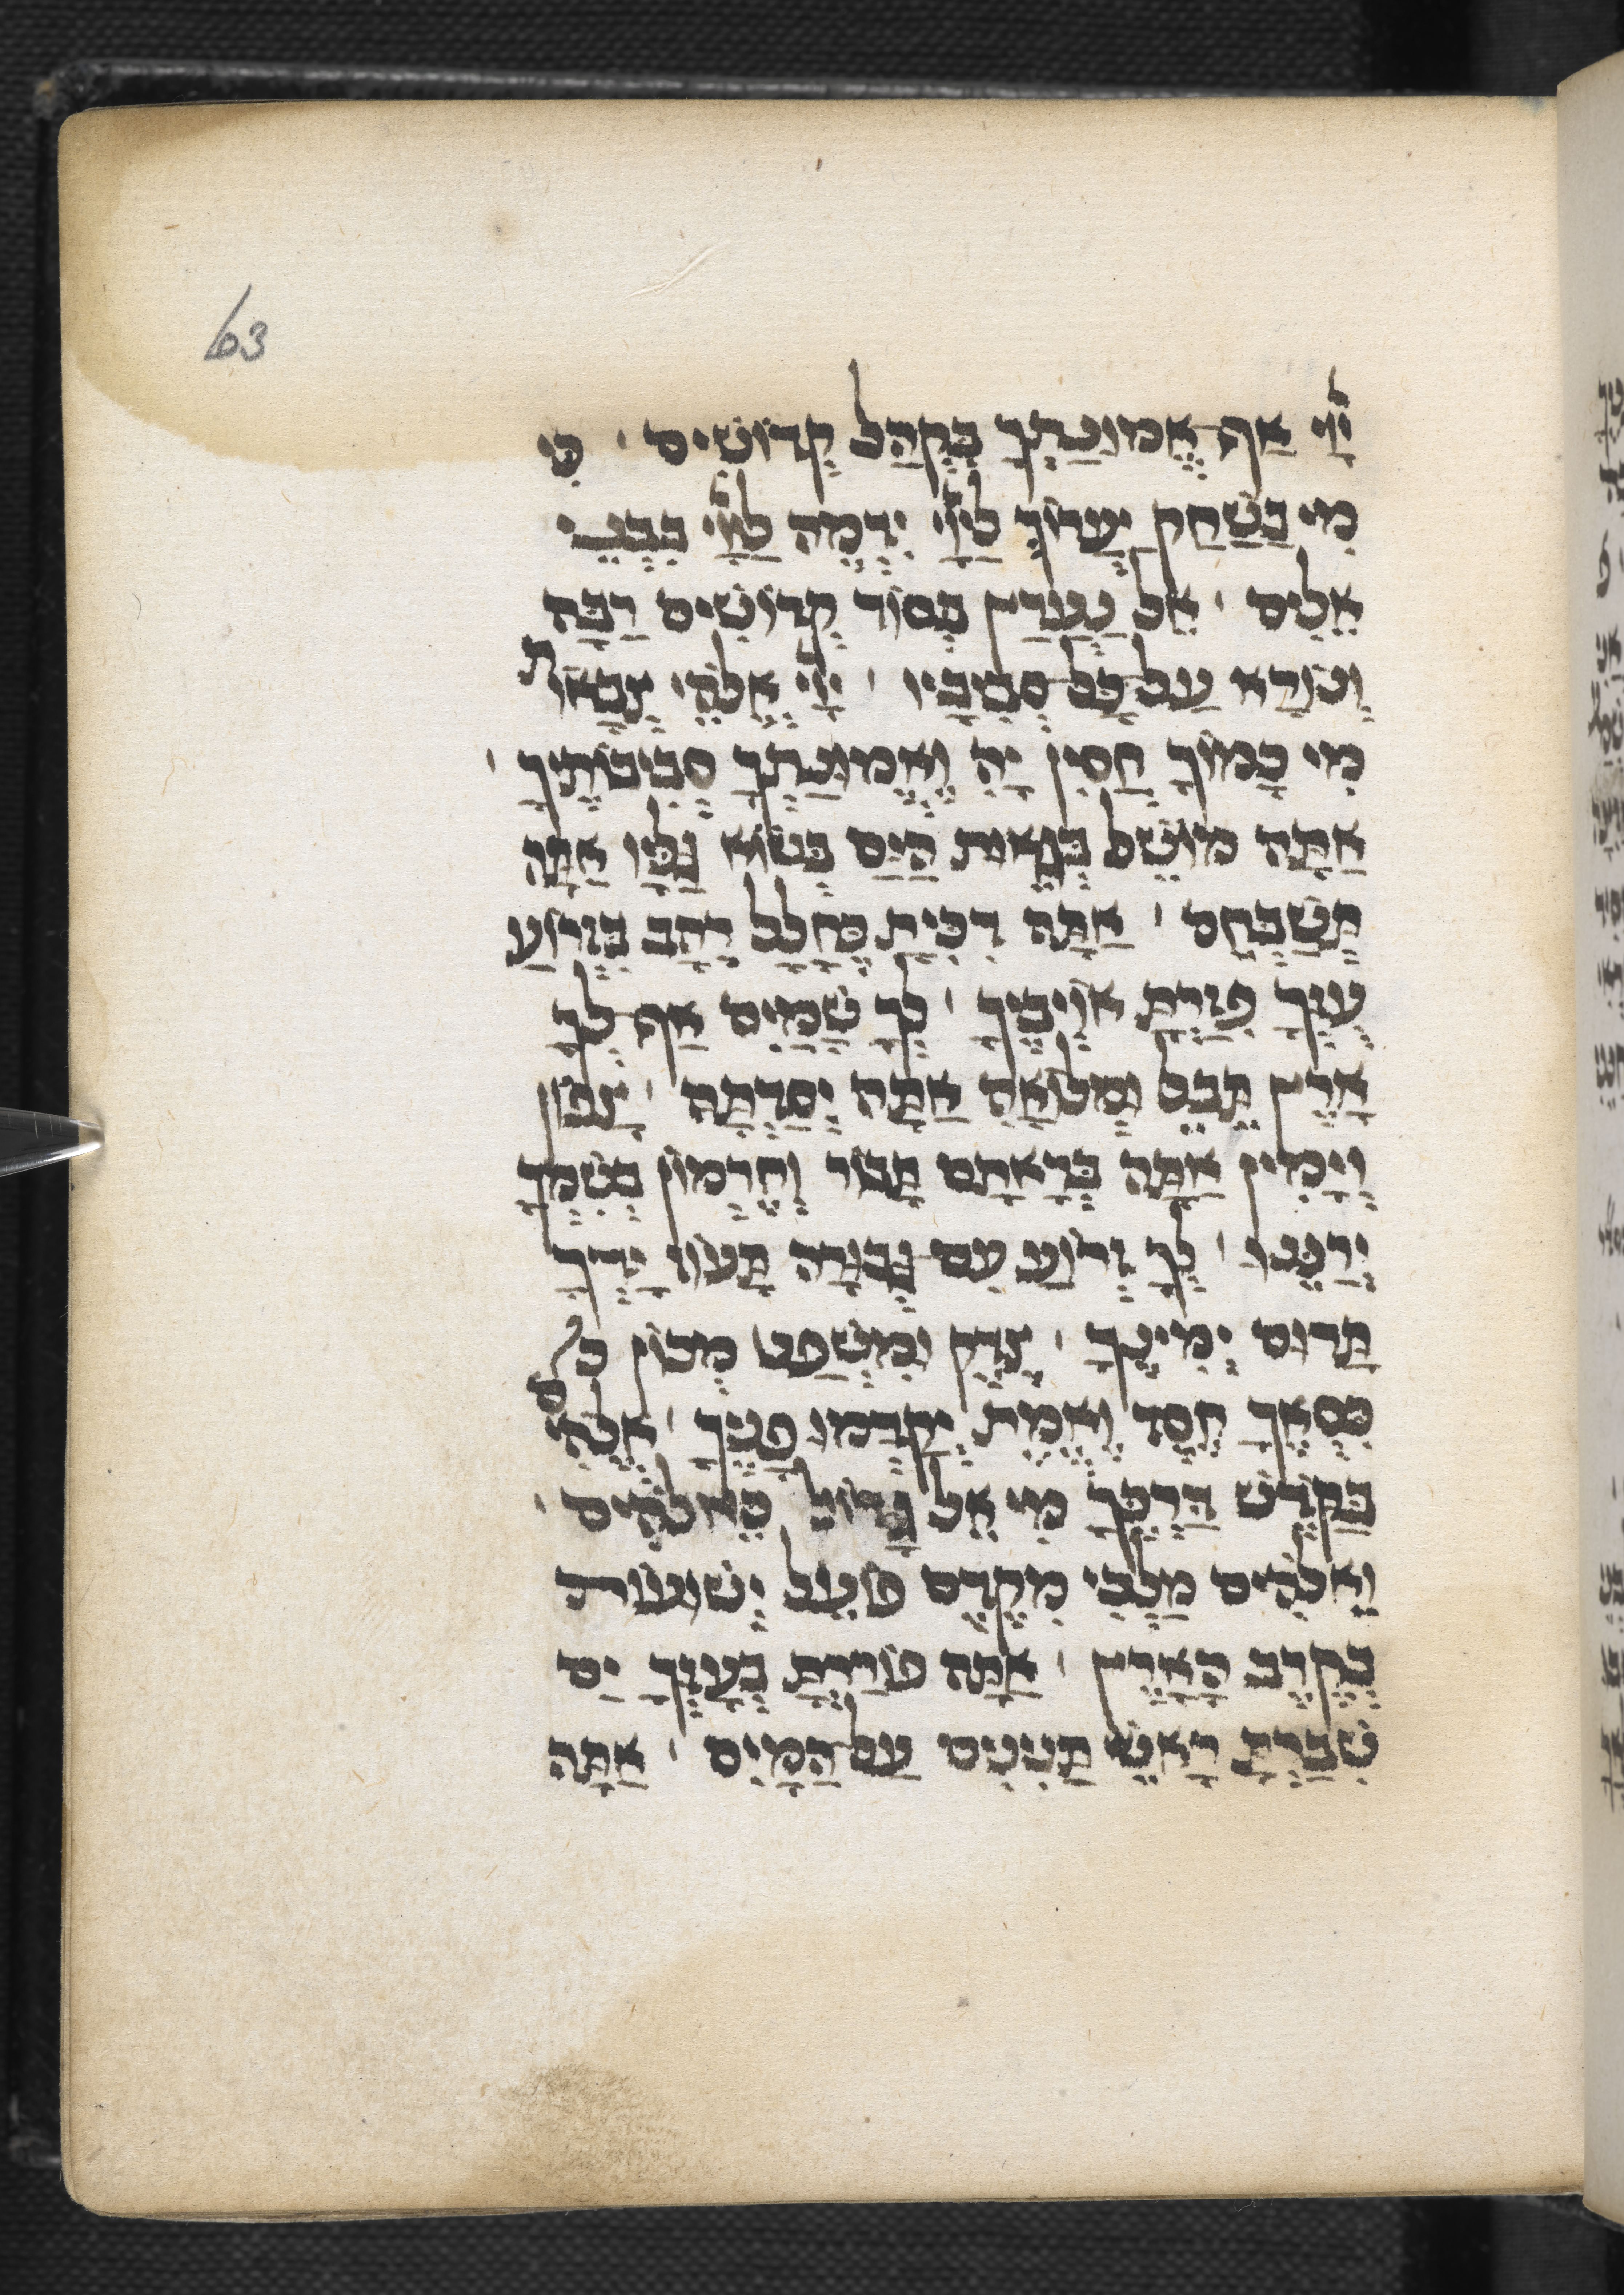 63
יְ֗יָ אַף אֱמוּנָתְךָ בִּקְהַל קְדוֹשִׁים ׳ כִּי
מִי בַשַּׁחַק יַעֲרוֹךְ לַיְיָ יִדְמֶה לַיְיָ בִּבְנֵי
אֵלִים ׳ אֵל נַעֲרָץ בְּסוֹד קְדוֹשִׁים רַבָּה
וְנוֹרָא עַל כָּל סְבִיבָיו ׳ יְיָ אֱלֹהֵי צְבָאוֹת
מִי כָמוֹךָ חֲסִין יָהּ וֶאֱמוּנָתְךָ סְבִיבוֹתֶיךָ ׳
אַתָּה מוֹשֵׁל בְּגֵאוּת הַיָּם בְּשׂוֹא גַלָּיו אַתָּה
תְשַׁבְּחֵם ׳ אַתָּה דִכִּיתָ כֶחָלָל רָהַב בִּזְרוֹעַ
עֻזְּךָ פִּזַּרְתָּ אוֹיְבֶיךָ ׳ לְךָ שָׁמַיִם אַף לְךָ
אָרֶץ תֵּבֵל וּמְלוֹאָהּ אַתָּה יְסַדְתָּהּ ׳ צָפוֹן
וְיָמִין אַתָּה בְּרָאתָם תָּבוֹר וְחֶרְמוֹן בְּשִׁמְךָ
יְרַנֵּנוּ ׳ לְךָ זְרוֹעַ עִם גְּבוּרָה תָּעוֹז יָדְךָ
תָּרוּם יְמִינֶךָ ׳ צֶדֶק וּמִשְׁפָּט מְכוֹן כ
כִּסְאֶךָ חֶסֶד וֶאֱמֶת יְקַדְּמוּ פָנֶיךָ ׳ אֱלֹהִים
בַּקֹּדֶשׁ דַּרְכֶּךָ מִי אֵל גָּדוֹל כֵּאלֹהִים ׳
וֵאלֹהִים מַלְכִּי מִקֶּדֶם פּוֹעֵל יְשׁוּעוֹת
בְּקֶרֶב הָאָרֶץ ׳ אַתָּה פוֹרַרְתָּ בְעָזְּךָ יָם
שִׁבַּרְתָּ רָאשֵׁי תַנִּינִים עַל הַמָּיִם ׳ אַתָּה